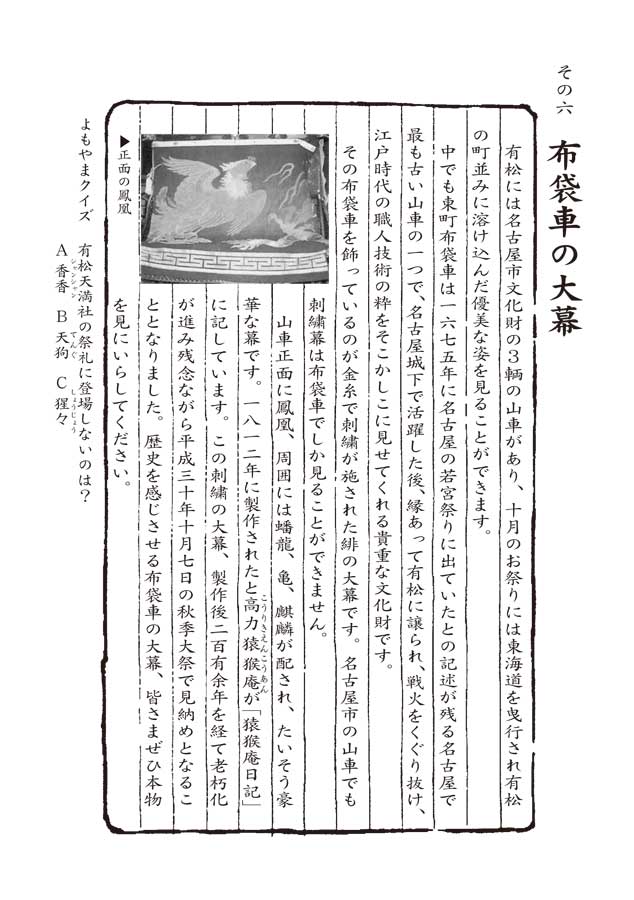 その六
布袋車の大幕
有松には名古屋市文化財の3輌の山車があり、十月のお祭りには東海道を曳行され有松
の町並みに溶け込んだ優美な姿を見ることができます。
中でも東町布袋車は一六七五年に名古屋の若宮祭りに出ていたとの記述が残る名古屋で
最も古い山車の一つで、名古屋城下で活躍した後、縁あって有松に譲られ、戦火をくぐり抜け、
江戸時代の職人技術の粋をそこかしこに見せてくれる貴重な文化財です。
その布袋車を飾っているのが金糸で刺繍が施された緋の大幕です。名古屋市の山車でも
刺繍幕は布袋車でしか見ることができません。
山車正面に鳳凰、周囲には蟠龍、亀、麒麟が配され、たいそう豪
華な幕です。一八一二年に製作されたと高力猿猴庵が「猿猴庵日記」
こうりきえんこうあん
に記しています。この刺繍の大幕、製作後二百有余年を経て老朽化
が進み残念ながら平成三十年十月七日の秋季大祭で見納めとなるこ
ととなりました。歴史を感じさせる布袋車の大幕、皆さまぜひ本物
を見にいらしてください。
▶正面の鳳凰
よもやまクイズ
有松天満社の祭礼に登場しないのは?
A 香香 B 天狗 C 猩々
シャンシャン てんぐ しょうじょう